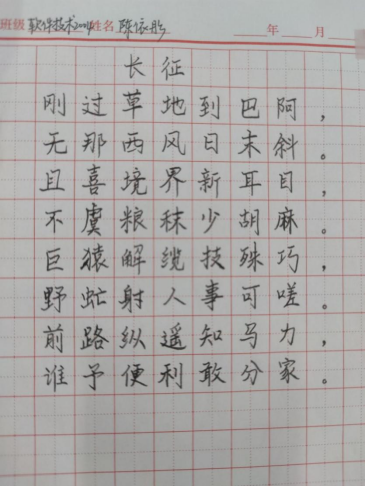 班级 软件技术2004 姓名 陈依彤 年 月
长征
刚过草地到巴阿，
无那西风日末斜。
且喜境界新耳目，
不虞粮秣少胡麻。
巨猿解缆技殊巧，
野虻射人事可嗟。
前路纵遥知马力，
谁予便利敢分家。